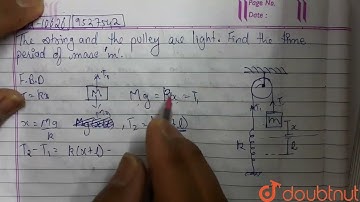 Page No.
Date :
10026 | 9527542
The string and the pulley are light. Find the time
period of mass 'm'.
F.B.D
T = kx
m
Mg = kx = T,
x = Mg/k
T₂ = k(x+l)
T₂ - T₁ = k(x+l) -
T₁
T
m
x
l
k
doubtnut